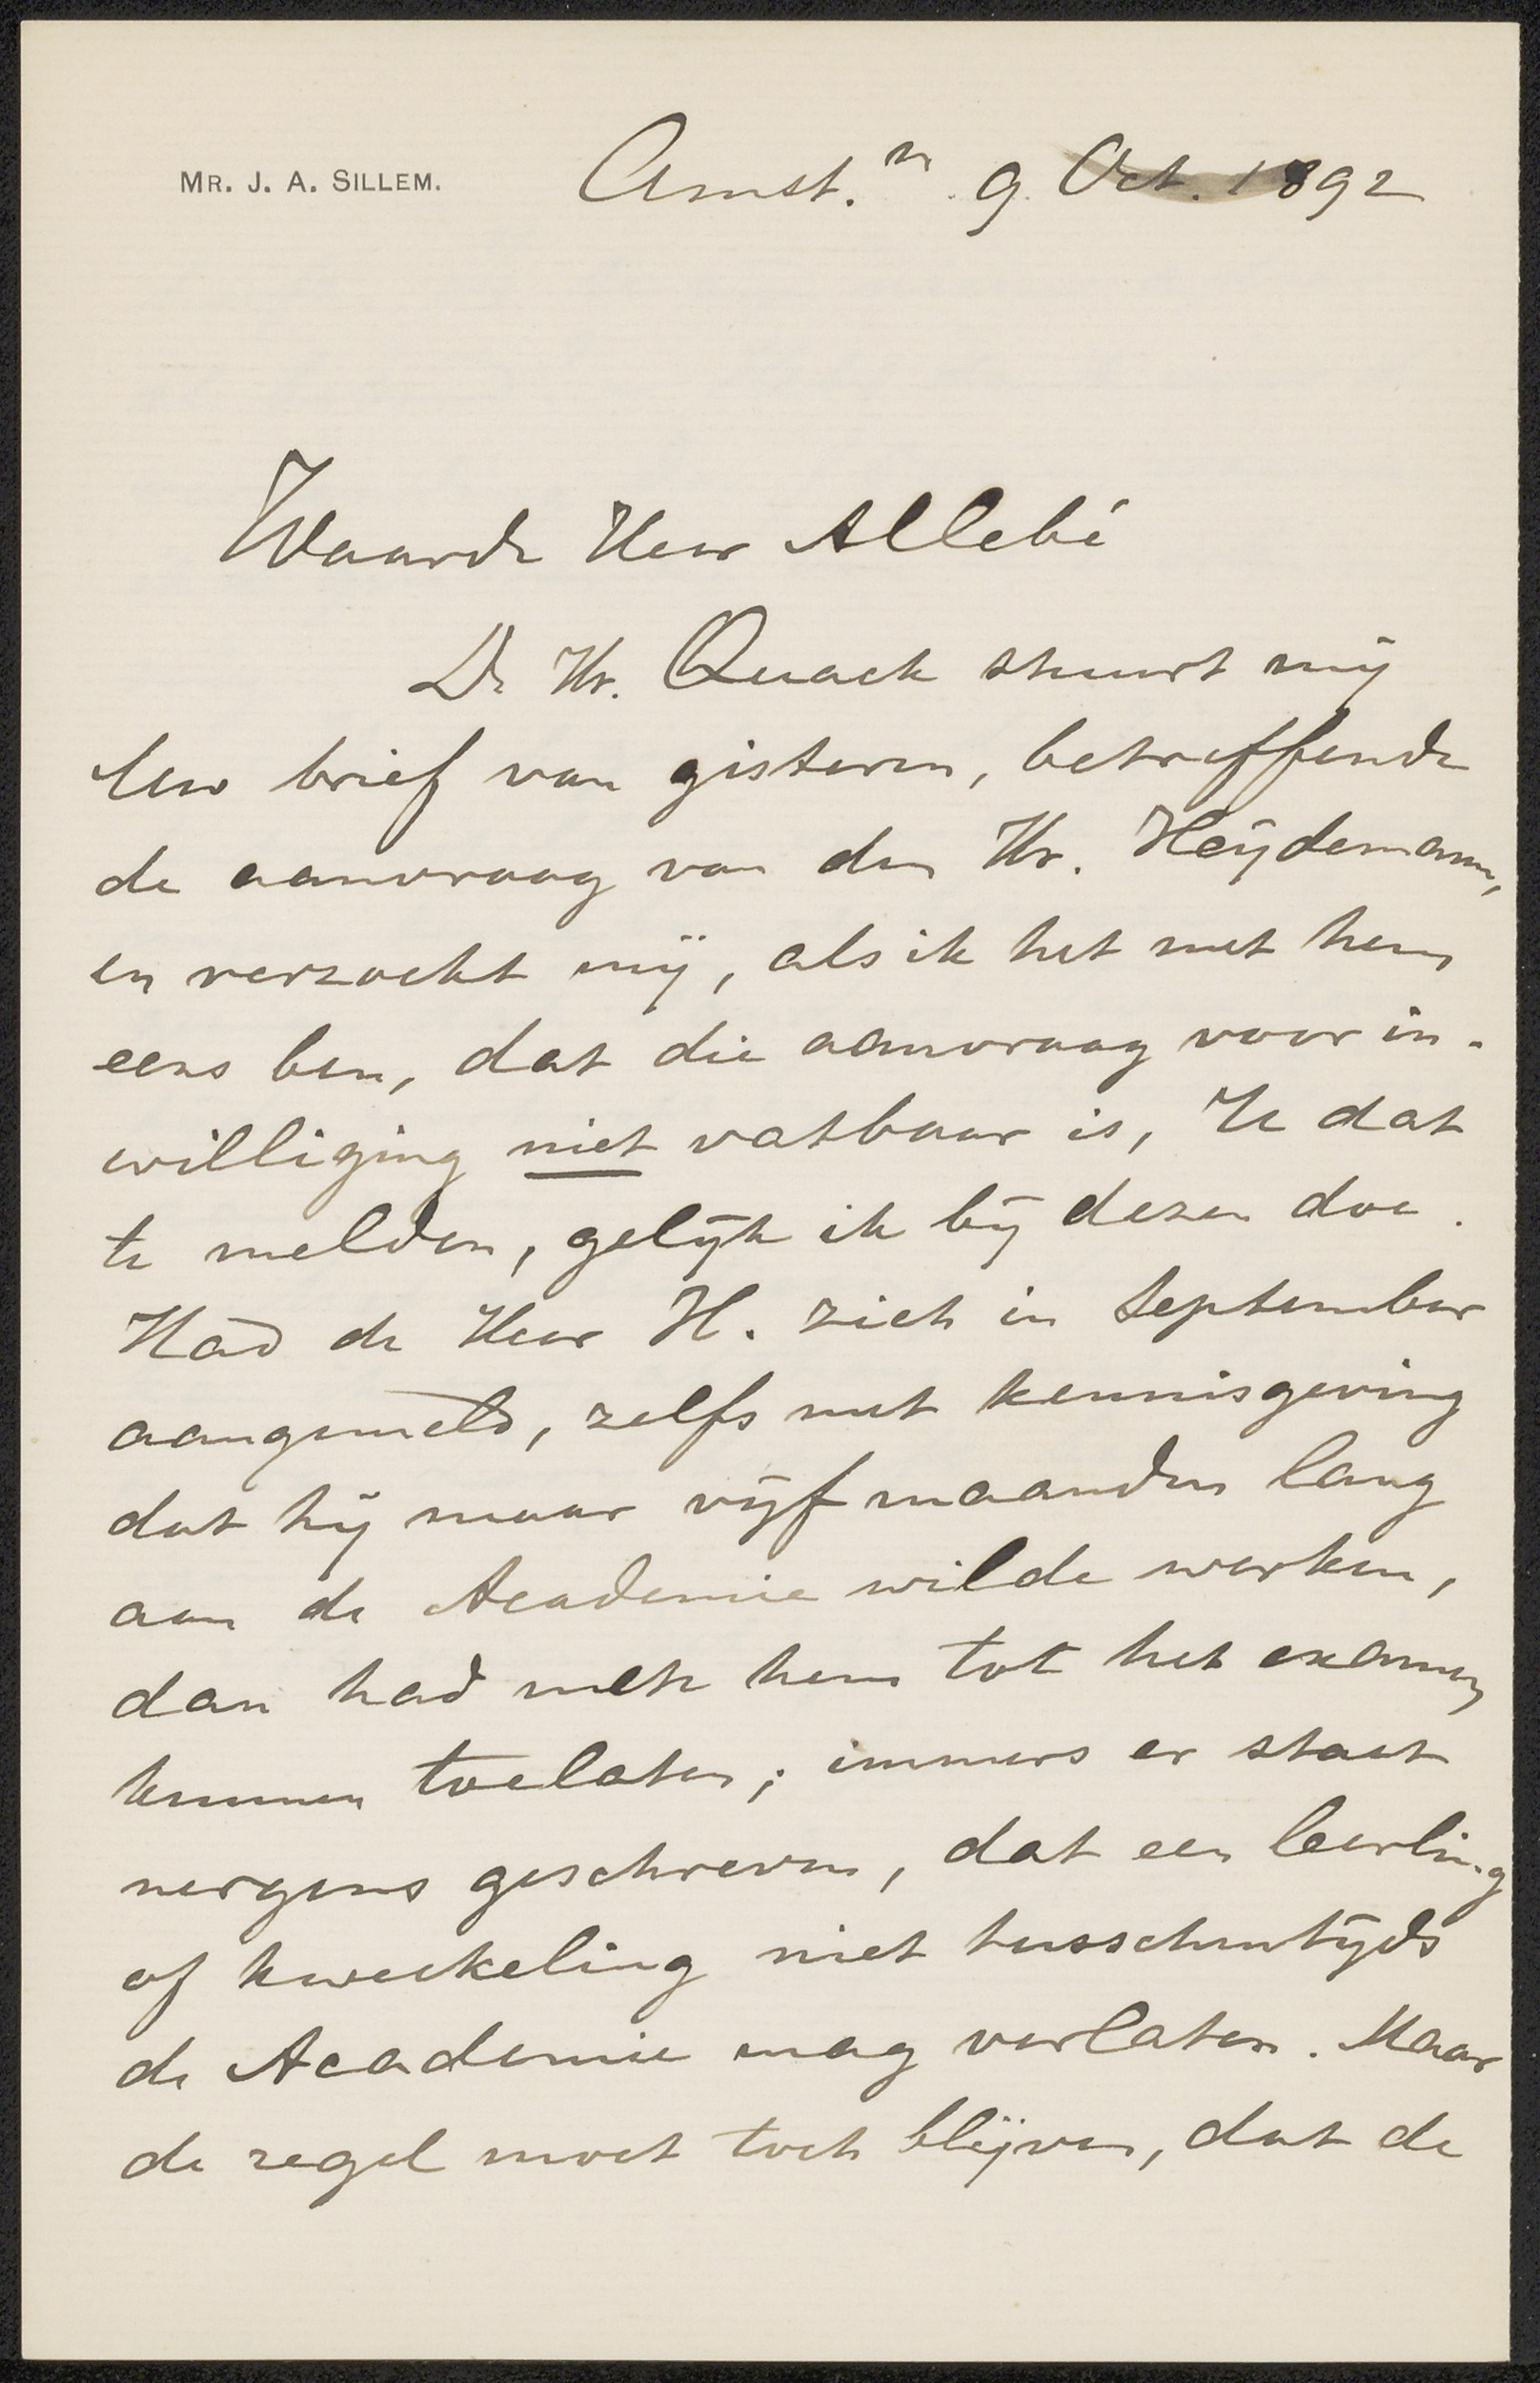 MR. J. A. SILLEM.
Amst.m 9. Oct. 1892
Waarde Heer Allebé
De Hr. Quack stuurt mij
Uw brief van gisteren, betreffende
de aanvraag van den Hr. Heijdemann,
en verzoekt mij, als ik het met hem
eens ben, dat die aanvraag voor in-
williging niet vatbaar is, U dat
te melden, gelijk ik bij dezen doe.
Had de Heer H. zich in September
aangemeld, zelfs met kennisgeving
dat hij maar vijf maanden lang
aan de Academie wilde werken,
dan had men hem tot het examen
kunnen toelaten; immers er staat
nergens geschreven, dat een leerling
of kweekeling niet tusschentijds
de Academie mag verlaten. Maar
de regel moet toch blijven, dat de